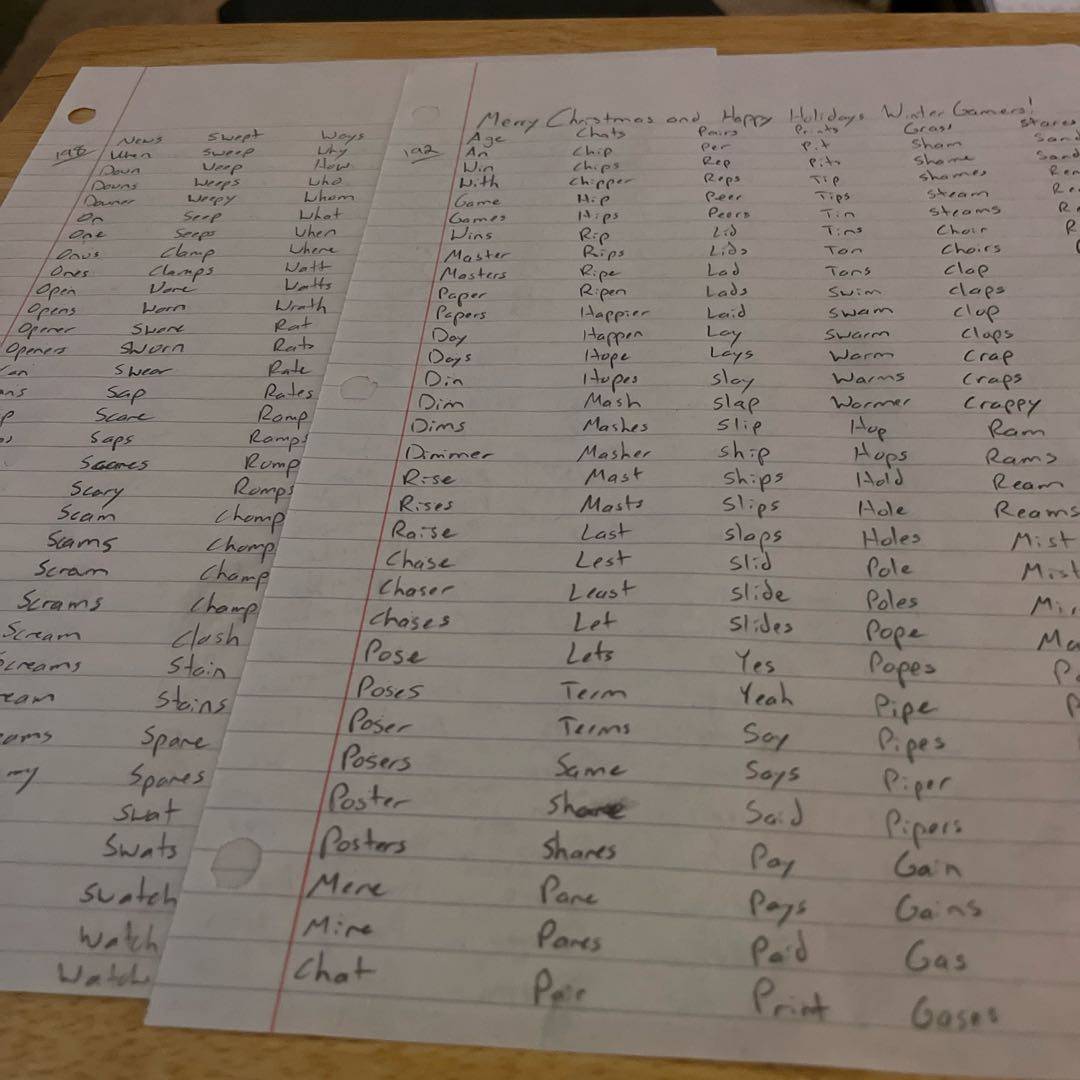 News Swept Ways
198 When Sweep Why
Down Weep How
Downs Weeps Who
Downer Weepy Whom
On Seep What
One Seeps When
Onus Clamp Where
Ones Clamps Watt
Open Wore Watts
Opens Worn Wrath
Opener Swore Rat
Openers Sworn Rats
Swear Rate
Sap Rates
Scare Ramp
Saps Ramps
Scares Romp
Scary Romps
Scam Chomp
Scams Chomp
Scram Champ
Scrams Champ
Scream Clash
Screams Stain
Stains
Spare
Spares
Swat
Swats
Swatch
Watch
Watch
Merry Christmas and Happy Holidays Winter Gamers!
Age Chats Pairs Prints Grass Stares
192 An Chip Per Pit Sham Sand
Win Chips Rep Pits Shame Sand
With Chipper Reps Tip Shames
Game Hip Peer Tips Steam
Games Hips Peers Tin Steams
Wins Rip Lid Tins Choir
Master Rips Lids Ton Choirs
Masters Ripe Lad Tons Clap
Paper Ripen Lads Swim Claps
Papers Happier Laid Swam Clop
Day Happen Lay Swarm Clops
Days Hope Lays Warm Crap
Din Hopes Slay Warms Craps
Dim Mash Slap Warmer Crappy
Dims Mashes Slip Hop Ram
Dimmer Masher Ship Hops Rams
Rise Mast Ships Hold Ream
Rises Masts Slips Hole Reams
Raise Last Slaps Holes Mist
Chase Lest Slid Pole Mist
Chaser Least Slide Poles
Chases Let Slides Pope
Pose Lets Yes Popes
Poses Term Yeah Pipe
Poser Terms Say Pipes
Posers Same Says Piper
Poster Share Said Pipers
Posters Shares Pay Gain
Mere Pare Pays Gains
Mire Pares Paid Gas
Chat Pair Print Gases